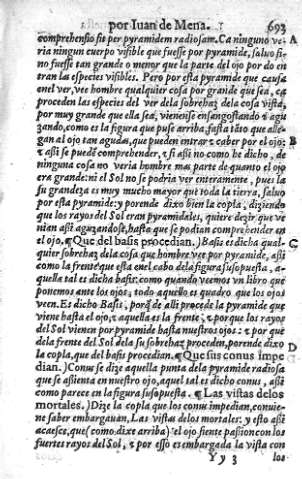 por Iuan de Mena. 693
comprehensio fit per pyramidem radiosam. Ca ninguno ve- A
ria ningun cuerpo visible que fuesse por pyramide, saluo si-
no fuesse tan grande o menor que la parte del ojo por do en
tran las especies visibles. Pero por esta pyramide que causa
enel ver, vee hombre qualquier cosa por grande que sea, ca
proceden las especies del ver dela sobrehaz dela cosa vista,
por muy grande que ella sea, vienense ensangostando ⁊ agu
zando, como es la figura que puse arriba, fasta tãto que alle-
gan al ojo tan agudas, que pueden entrar ⁊ caber por el ojo: B
⁊ assi se puedẽ comprehender, ⁊ si assi no como he dicho, de
ninguna cosa no veria hombre mas parte de quanto el ojo
era grande: ni el Sol no se podria ver enteramente, pues la
su grandeza es muy mucho mayor que toda la tierra, saluo
por esta pyramide: y porende dixo bien la copla, diziendo
que los rayos del Sol eran pyramidales, quiere dezir que ve
nian assi aguzandose, hasta que se podian comprehender en
el ojo. ¶ Que del basis procedian.) Basis es dicha qual- C
quier sobrehaz dela cosa que hombre vee por pyramide, assi
como la frente que esta enel cabo dela figura susopuesta, a-
quella tal es dicha basis: como quando veemos vn libro que
ponemos ante los ojos, todo aquello es quadro que los ojos
veen. Es dicho Basis, porq̃ de alli procede la pyramide que
viene hasta el ojo, ⁊ aquella es la frente, ⁊ porque los rayos
del Sol vienen por pyramide hasta nuestros ojos: ⁊ por que
dela frente del Sol dela su sobrehaz proceden, porende dixo
la copla, que del basis procedian. ¶ Que sus conus impe D
dian.) Conus se dize aquella punta dela pyramide radiosa
que se assienta en nuestro ojo, aquel tal es dicho conus, assi
como parece en la figura susopuesta. ¶ Las vistas delos
mortales.) Dize la copla que los conus impedian, conuie-
ne saber embargauan, Las vistas delos mortales: y esto assi
acaesce, que (como dixe arriba) el ojo siente passion con los
fuertes rayos del Sol, ⁊ por esso es embargada la vista con
Yy 3 los